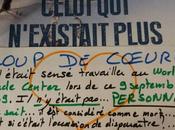 CELUI QUI
N'EXISTAIT PLUS
COUP DE CŒUR
Il était sensé travailler au World
Trade Center lors de ce 9 septembre
Il n'y était pas... PERSONNE
sait... il est considéré comme mort...
si c'était l'occasion de disparaître...